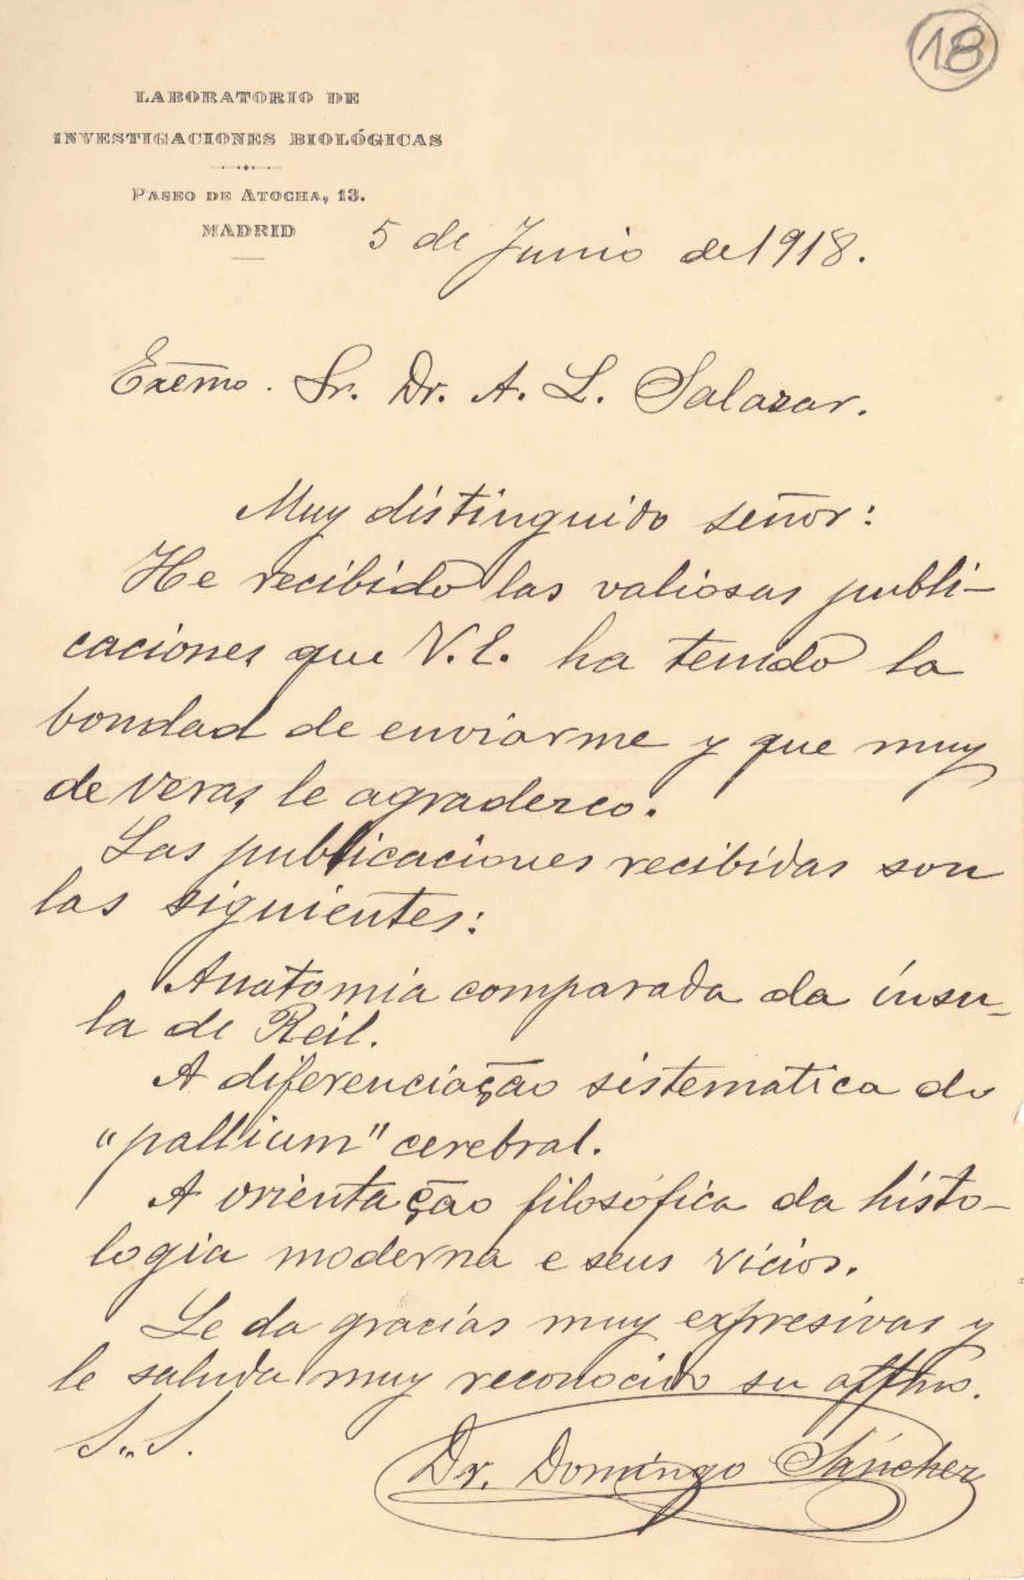 18
LABORATORIO DE
INVESTIGACIONES BIOLÓGICAS
PASEO DE ATOCHA, 13.
MADRID
5 de Junio de 1918.
Excmo. Sr. Dr. A. L. Salazar.
Muy distinguido señor:
He recibido las valiosas publi-
caciones que V. E. ha tenido la
bondad de enviarme y que muy
de veras le agradezco.
Las publicaciones recibidas son
las siguientes:
Anatomia comparada da ínsu-
la de Reil.
A diferenciação sistematica do
"pallium" cerebral.
A orientação filosófica da histo-
logia moderna e seus vicios.
Le da gracias muy expresivas y
le saluda muy reconocido su affmo.
S. S.
Dr. Domingo Sánchez